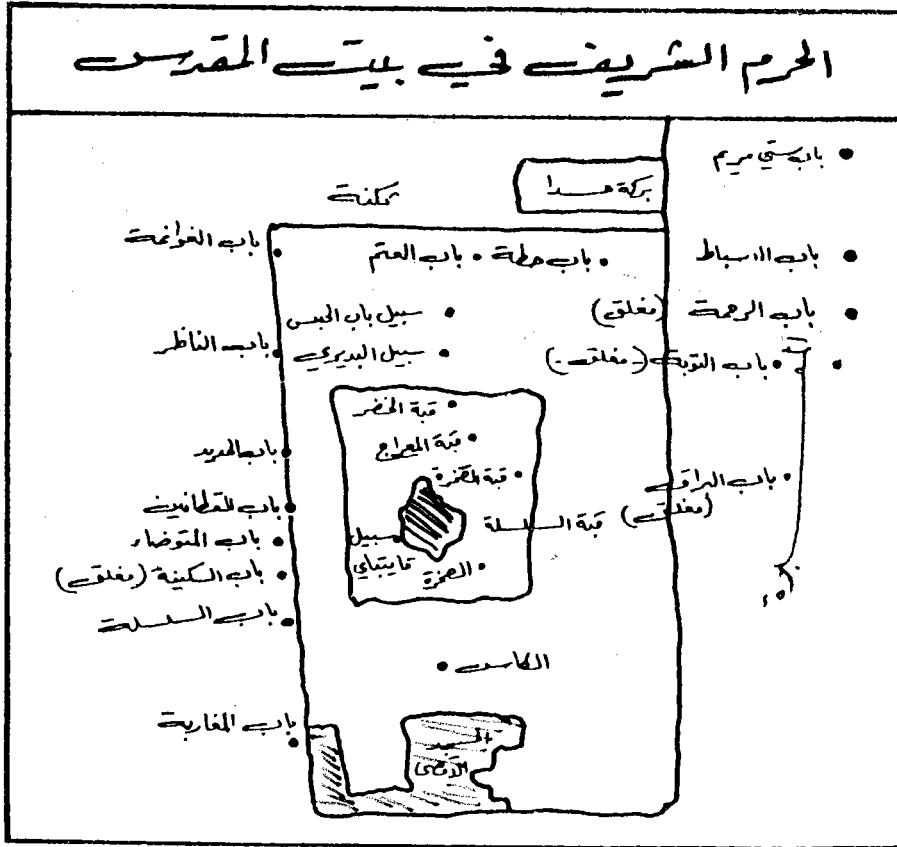 الحرم الشريف في بيت المقدس
باب ستي مريم
بركة
ثكنة
باب الغوانمة
باب الاسباط
باب حطة
باب العتم
باب الرحمة (مغلق)
سبيل باب الحبس
باب الناظر
باب التوبة (مغلق)
سبيل البديري
قبة الخضر
قبة المعراج
باب الحديد
قبة الصخرة
باب البراق
(مغلق)
باب القطانين
قبة السلسلة
باب المتوضاء
سبيل
قايتباي
الصخرة
باب السكينة (مغلق)
باب السلسلة
الكاس
باب المغاربة
المسجد
الاقصى